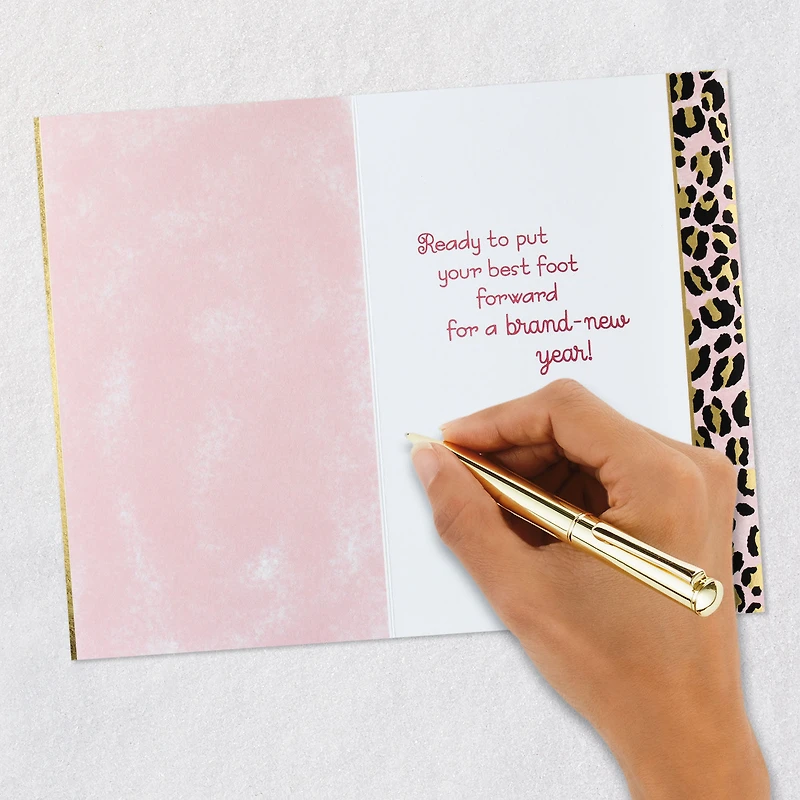 Ready to put
your best foot
forward
for a brand-new
year!